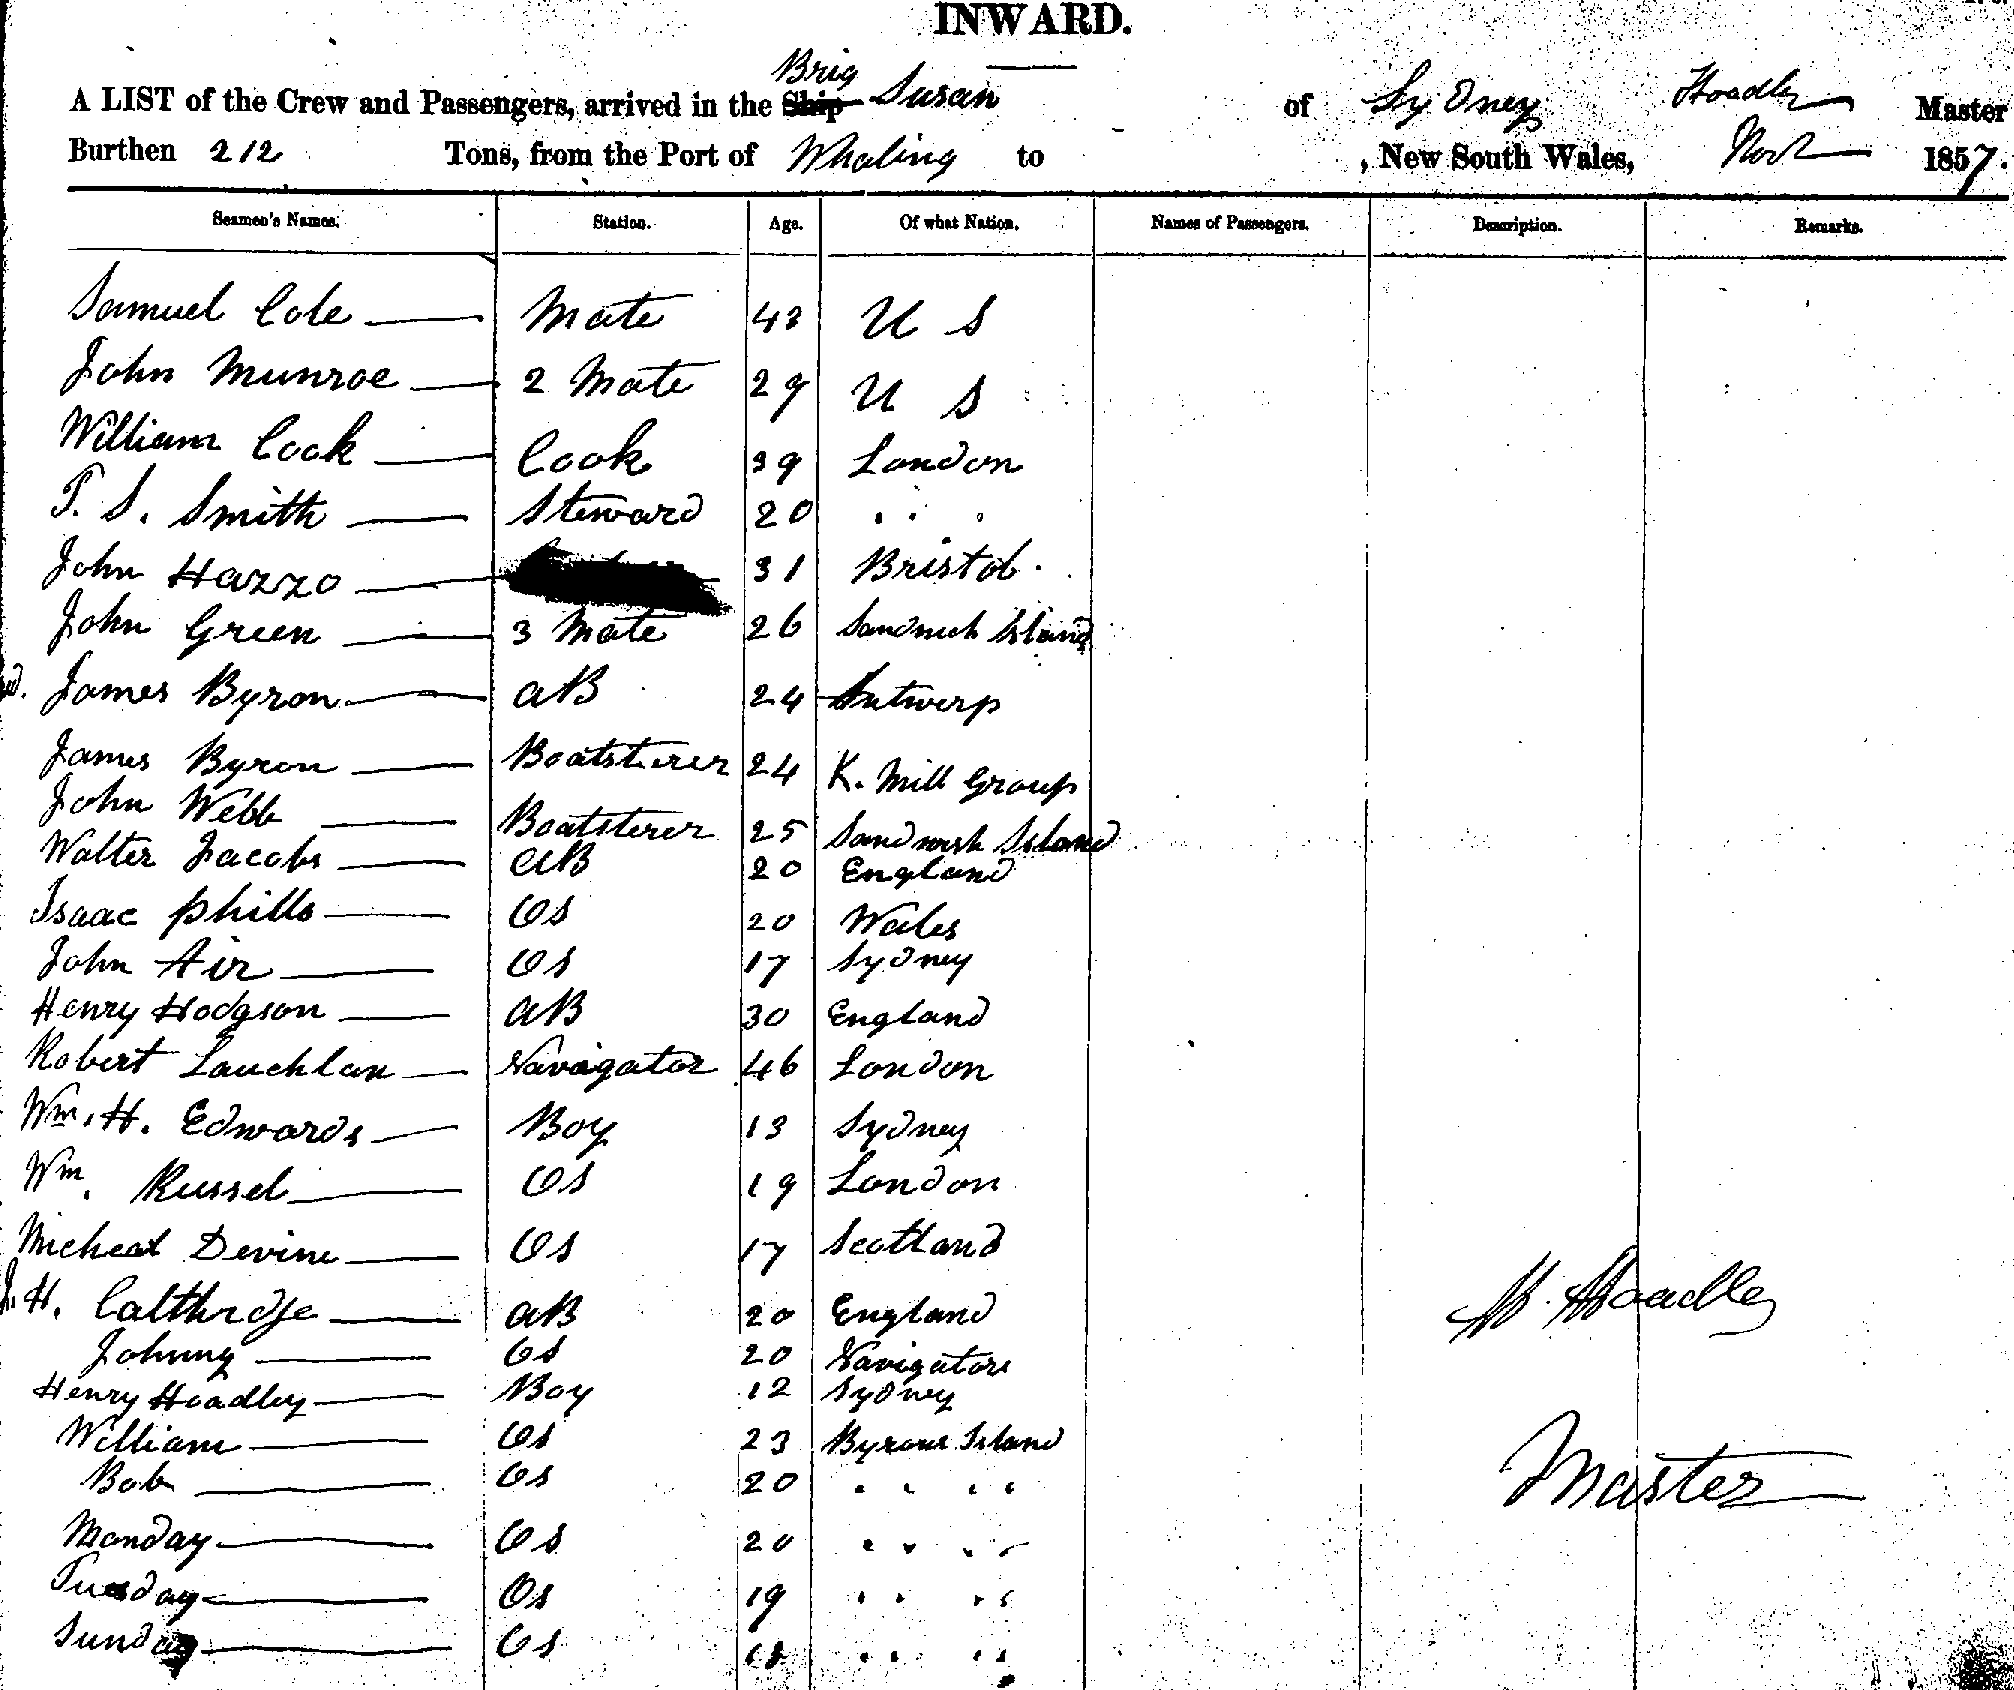 INWARD.
Brig
A LIST of the Crew and Passengers, arrived in the Ship Susan of Sydney Hoadley Master
Burthen 212 Tons, from the Port of Whaling to , New South Wales, 1857.
Seamen's Names. Station. Age. Of what Nation. Names of Passengers. Description. Remarks.
Samuel Cole Mate 43 U S
John Munroe 2 Mate 29 U S
William Cook Cook 39 London
T. S. Smith Steward 20 " "
John Hazzo 31 Bristol.
John Green 3 Mate 26 Sandwich Island
James Byron AB 24 Antwerp
James Byron Boatsterer 24 K. Mill Group
John Webb Boatsterer 25 Sandwich Island
Walter Jacobs AB 20 England
Isaac Phills OS 20 Wales
John Air OS 17 Sydney
Henry Hodgson AB 30 England
Robert Lauchlan Navigator 46 London
Wm. H. Edwards Boy 13 Sydney
Wm. Russel OS 19 London
Micheal Devine OS 17 Scotland
H. Calthrdge AB 20 England
Johnny OS 20 Navigators
Henry Hoadley Boy 12 Sydney
William OS 23 Byrons Island
Bob OS 20 " " " "
Monday OS 20 " " " "
Tuesday OS 19 " " " "
Sunday OS 18 " " " "
H. Hoadley
Master